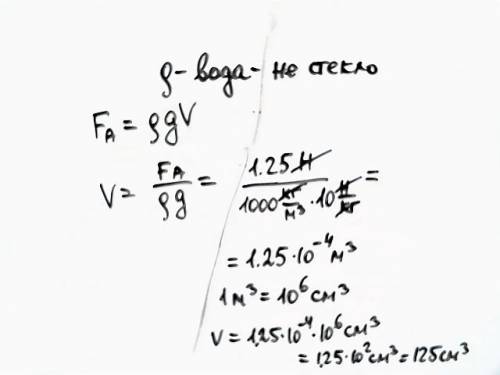 ρ - вода - не стекло
F_A = ρgV
V = F_A / ρg = 1.25 Н / 1000 кг/м³ · 10 Н/кг =
= 1.25 · 10⁻⁴ м³
1 м³ = 10⁶ см³
V = 1,25 · 10⁻⁴ · 10⁶ см³
= 1,25 · 10² см³ = 125 см³